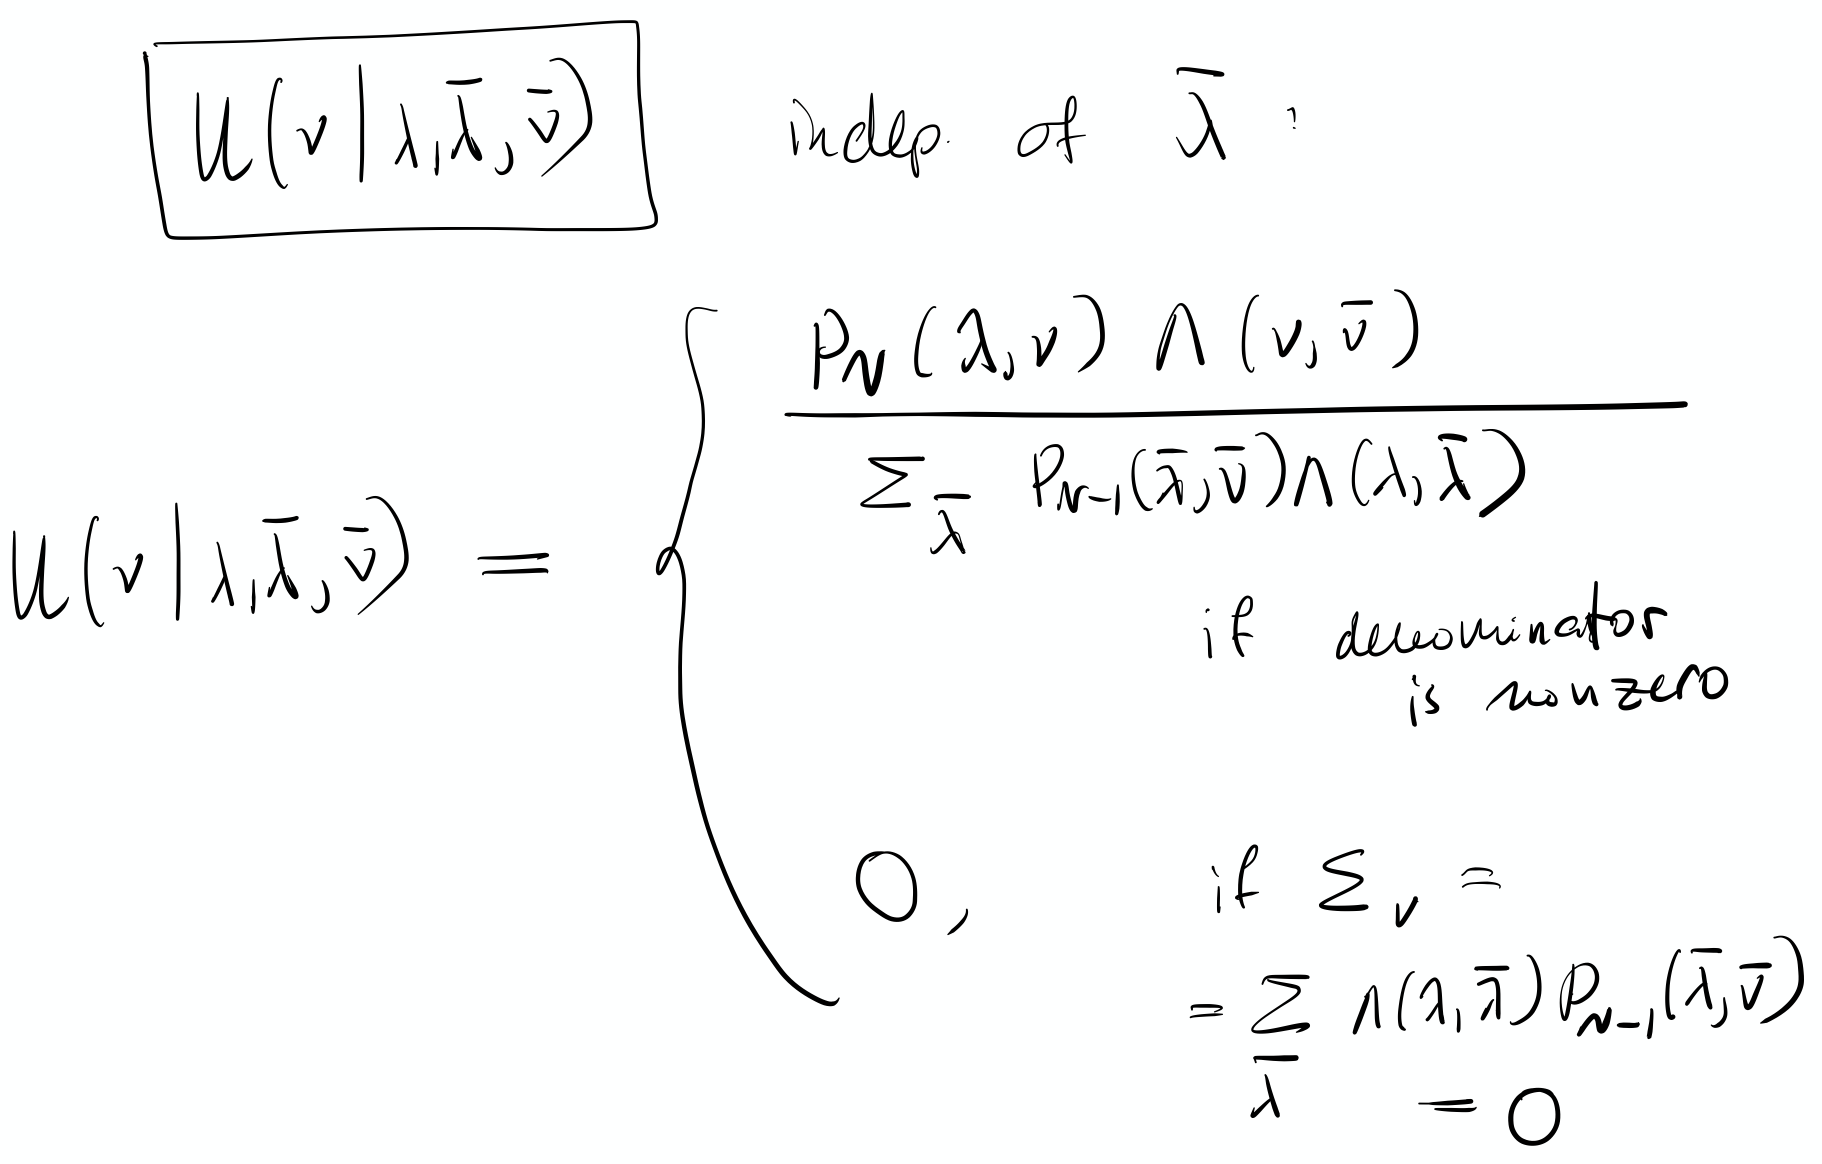 U(ν | λ, λ̄, ν̄) indep. of λ̄ :
P_N(λ, ν) Λ(ν, ν̄)
Σ_λ̄ P_{N-1}(λ̄, ν̄) Λ(λ, λ̄)
U(ν | λ, λ̄, ν̄) =
if denominator
is nonzero
0, if Σ_ν =
= Σ_λ̄ Λ(λ, λ̄) P_{N-1}(λ̄, ν̄)
= 0